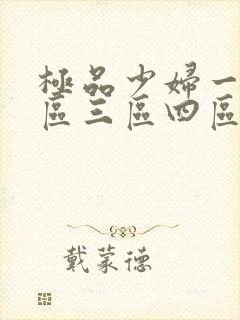 極品少婦一
區三區四區
戴蒙德